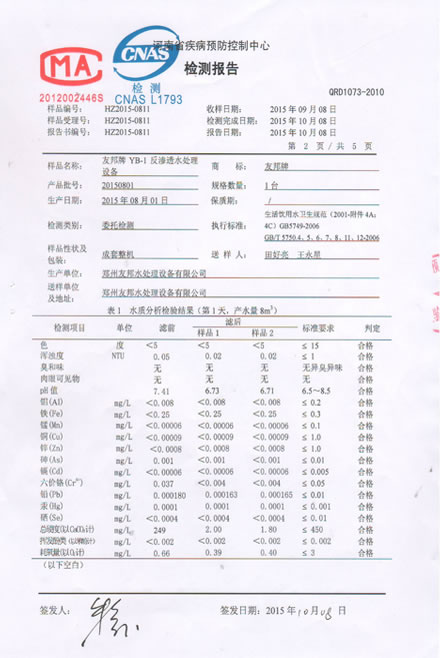 河南省疾病预防控制中心
MA
CNAS
检测
检测报告
2012002446S
CNAS L1793
QRD1073-2010
样品编号: HZ2015-0811 收样日期: 2015 年 09 月 08 日
样品受理号: HZ2015-0811 检测完成日期: 2015 年 10 月 08 日
报告书编号: HZ2015-0811 报告日期: 2015 年 10 月 08 日
第 2 页 / 共 5 页
样品名称: 友邦牌 YB-1 反渗透水处理设备 商 标: 友邦牌
产品批号: 20150801 规格数量: 1 台
生产日期: 2015 年 08 月 01 日 保质期: /
检测类别: 委托检测 执行标准: 生活饮用水卫生规范(2001-附件 4A;
4C) GB5749-2006
GB/T 5750.4、5、6、7、8、11、12-2006
样品性状及包装: 成套整机 送 样 人: 田好亮 王永星
生产单位: 郑州友邦水处理设备有限公司
送样单位及地址: 郑州友邦水处理设备有限公司
表 1 水质分析检验结果(第 1 天,产水量 8m³)
检测项目 单位 滤前 滤后 标准要求 判定
样品 1 样品 2
色 度 <5 <5 <5 ≤ 15 合格
浑浊度 NTU 0.05 0.02 0.02 ≤ 1 合格
臭和味 无 无 无 无异臭异味 合格
肉眼可见物 无 无 无 无 合格
pH值 7.41 6.73 6.71 6.5~8.5 合格
铝(Al) mg/L <0.008 <0.008 <0.008 ≤ 0.2 合格
铁(Fe) mg/L <0.25 <0.25 <0.25 ≤ 0.3 合格
锰(Mn) mg/L <0.00006 <0.00006 <0.00006 ≤ 0.1 合格
铜(Cu) mg/L <0.00009 <0.00009 <0.00009 ≤ 1.0 合格
锌(Zn) mg/L <0.0008 <0.0008 <0.0008 ≤ 1.0 合格
砷(As) mg/L 0.001 <0.001 <0.001 ≤ 0.01 合格
镉(Cd) mg/L <0.00006 <0.00006 <0.00006 ≤ 0.005 合格
六价铬(Cr⁶⁺) mg/L 0.037 <0.004 <0.004 ≤ 0.05 合格
铅(Pb) mg/L 0.000180 0.000163 0.000165 ≤ 0.01 合格
汞(Hg) mg/L 0.0001 0.0001 0.0001 ≤ 0.001 合格
硒(Se) mg/L <0.0004 <0.0004 <0.0004 ≤ 0.01 合格
总硬度(以CaCO₃计) mg/L 249 2.00 1.80 ≤ 450 合格
挥发酚类(以苯酚计) mg/L <0.002 <0.002 <0.002 ≤ 0.002 合格
耗氧量(以O₂计) mg/L 0.66 0.39 0.40 ≤ 3 合格
(以下空白)
签发人: 签发日期: 2015 年 10 月 08 日